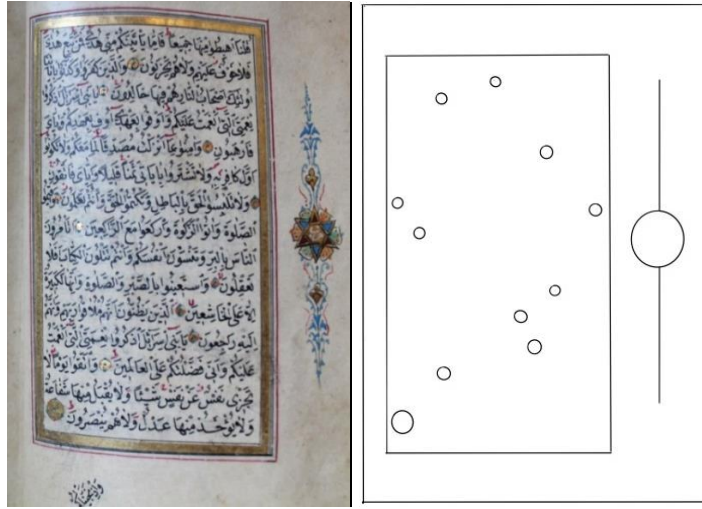 قلنا اهبطوا منها جميعا فاما ياتينكم مني هدى فمن تبع هداي
فلا خوف عليهم ولا هم يحزنون والذين كفروا وكذبوا باياتنا
اولئك اصحاب النار هم فيها خالدون يابني اسرائيل اذكروا
نعمتي التي انعمت عليكم واوفوا بعهدي اوف بعهدكم واياي
فارهبون وامنوا بما انزلت مصدقا لما معكم ولا تكونوا
اول كافر به ولا تشتروا باياتي ثمنا قليلا واياي فاتقون
ولا تلبسوا الحق بالباطل وتكتموا الحق وانتم تعلمون واقيموا
الصلوة واتوا الزكوة واركعوا مع الراكعين اتامرون
الناس بالبر وتنسون انفسكم وانتم تتلون الكتاب افلا
تعقلون واستعينوا بالصبر والصلوة وانها لكبيرة
الا على الخاشعين الذين يظنون انهم ملاقوا ربهم وانهم
اليه راجعون يابني اسرائيل اذكروا نعمتي التي انعمت
عليكم واني فضلتكم على العالمين واتقوا يوما لا
تجزي نفس عن نفس شيئا ولا يقبل منها شفاعة
ولا يؤخذ منها عدل ولا هم ينصرون